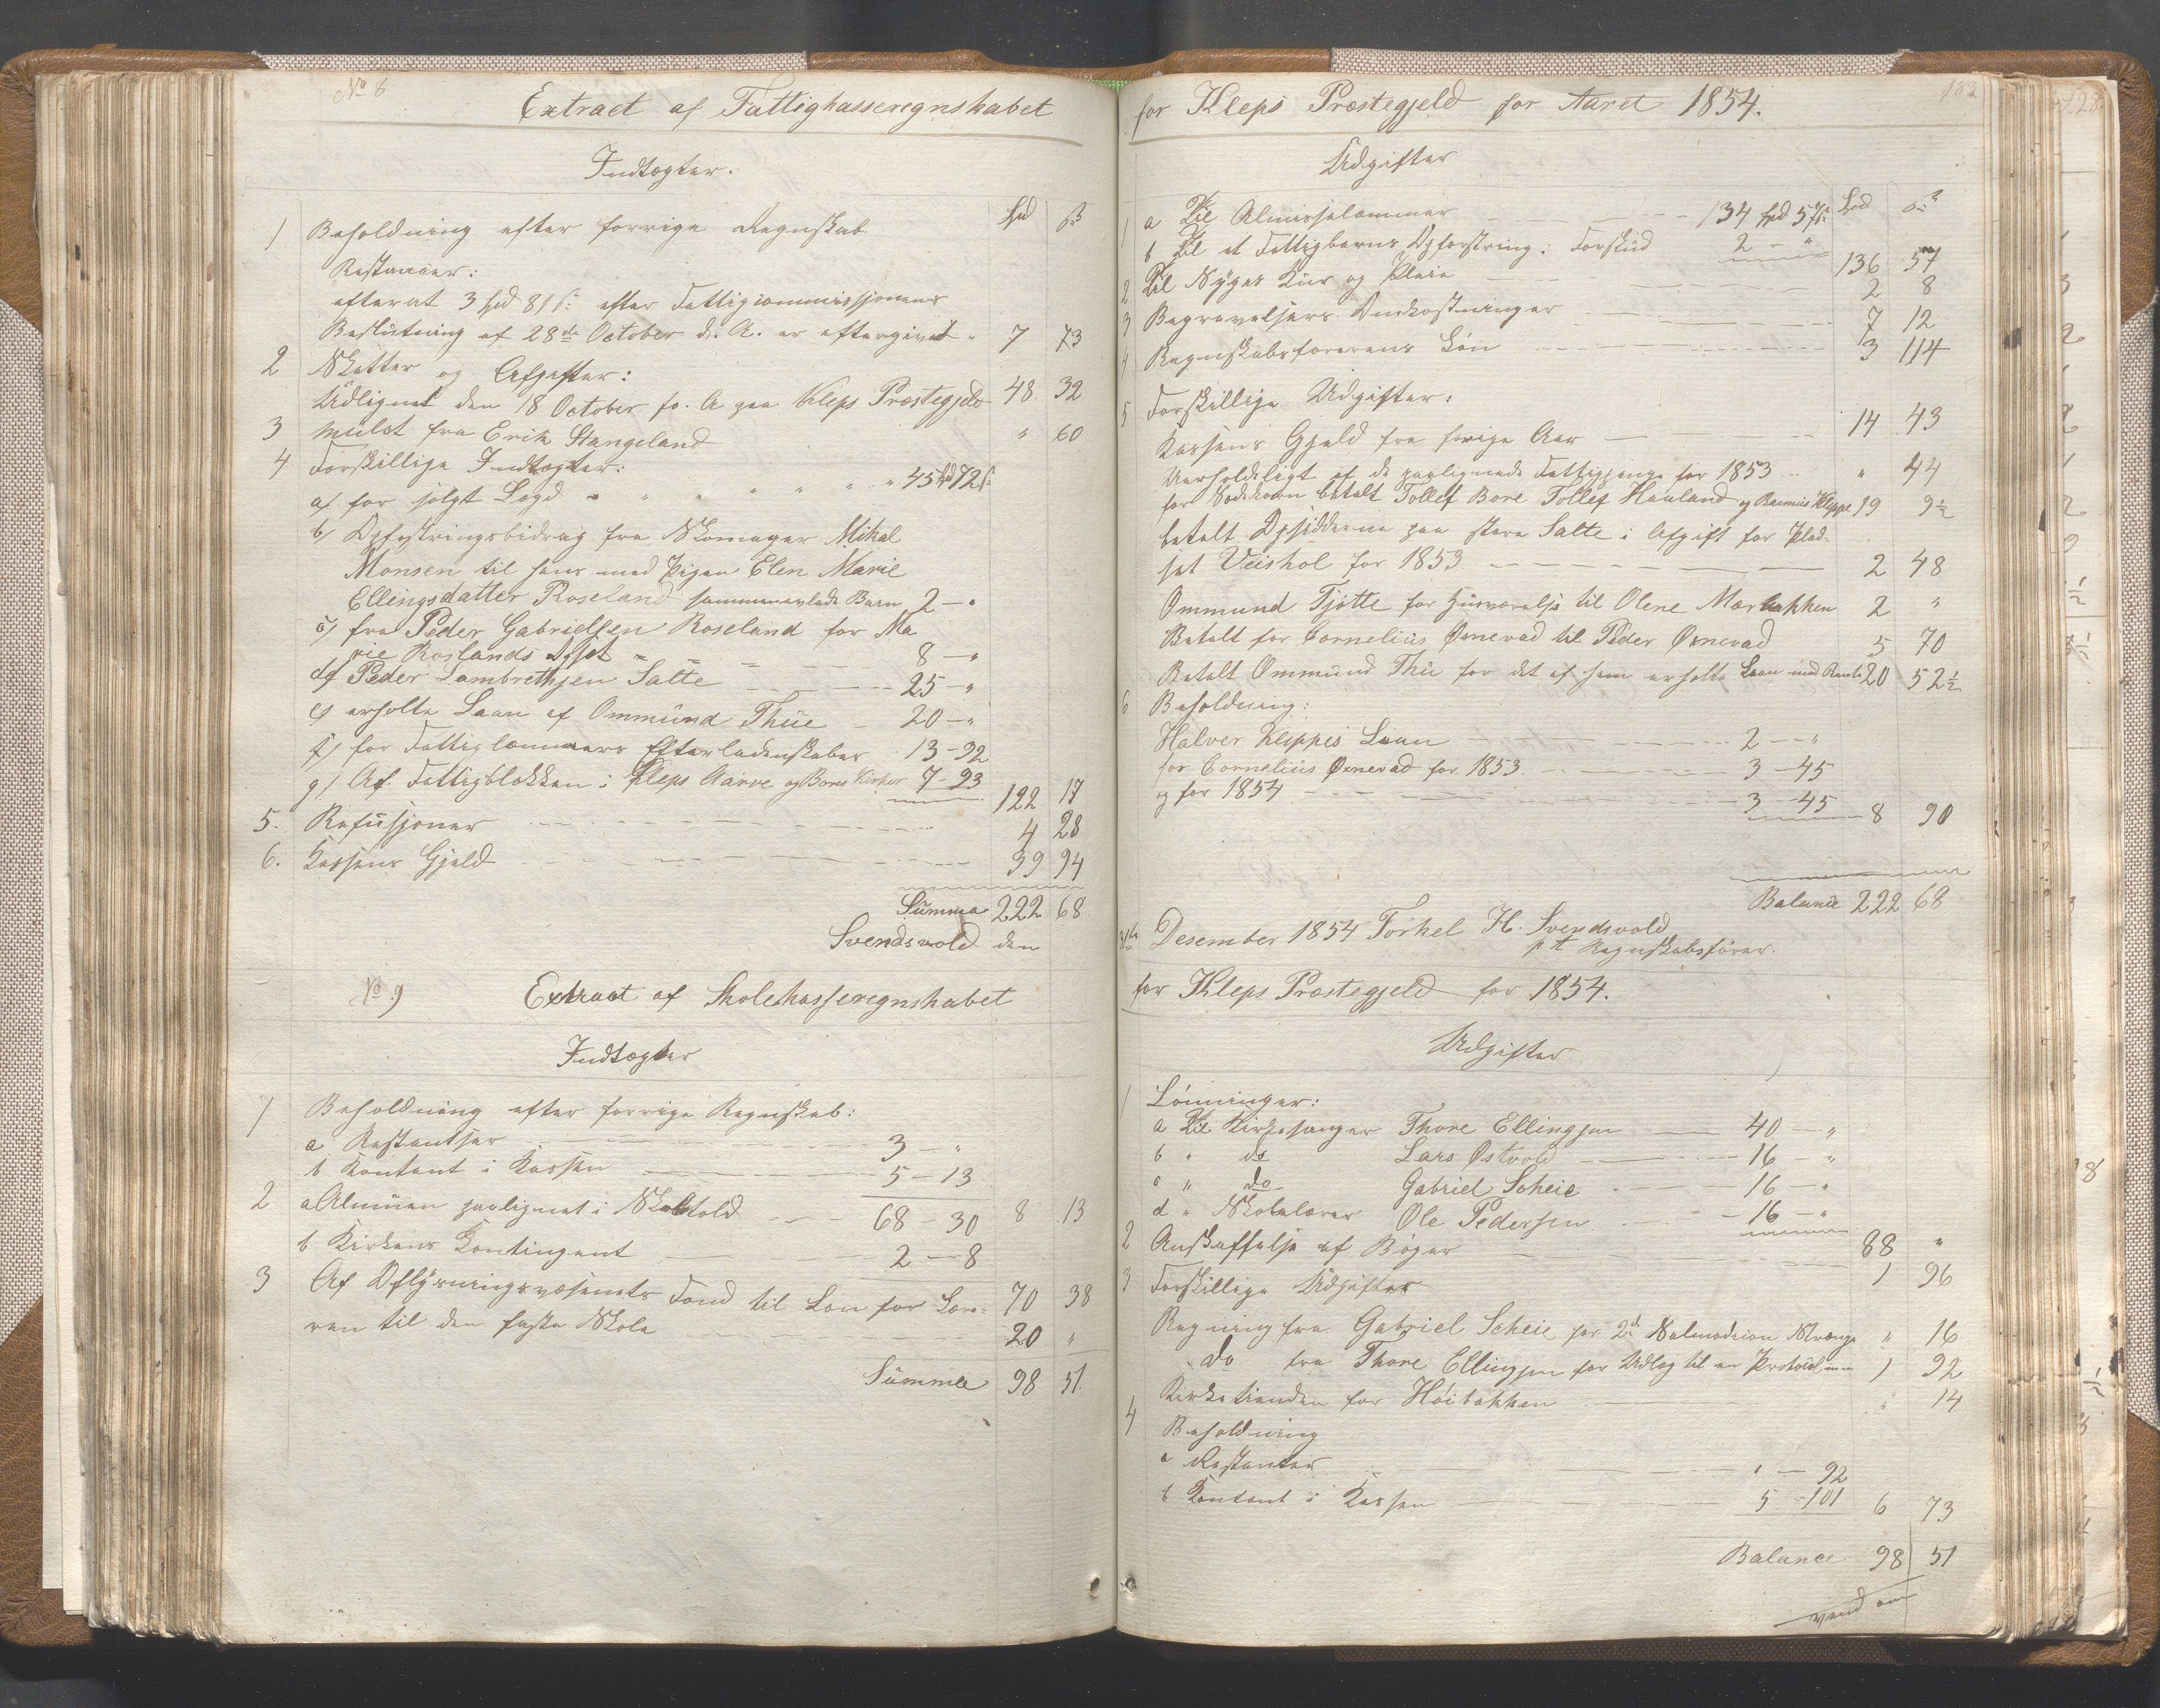 No 8
Extract af Fattigkasseregnskabet
Indtægter.
Spd ß
1 Beholdning efter forrige Regnskab
Restancer:
efterat 3 Spd 81 ß efter Fattigcommissionens
Beslutning af 28de October d. A. er eftergivet " 7 73
2 Skatter og Afgifter:
Udlignet den 18 October f. A paa Kleps Præstegjeld 48 32
3 Mulct fra Erik Stangeland " 60
4 Forskillige Indtægter:
a) for solgt Lægd " " " " " " 45 Spd 72 ß
b) Opfostringsbidrag fra Skomager Mikal
Monsen til hans med Pigen Elen Marie
Ellingsdatter Roseland sammenavlede Barn 2 - "
c) fra Peder Gabrielsen Roseland for Ma
rie Roslands 8 - "
d) Peder Lambrethsen Salte 25 - "
e) erholte Laan af Ommund Thüe 20 - "
f) for Fattiglemmers Efterladenskaber 13 - 92
g) Af Fattigblokken i Kleps Aarre og Bores Kirker 7 - 93
122 17
5. Refusjoner 4 28
6. Kassens Gjeld 39 94
Summa 222 68
Svendsvold den
No 9 Extract af Skolekasseregnskabet
Indtægter
1 Beholdning efter forrige Regnskab:
a Restantser 3 - "
b Kontant i Kassen 5 - 13
8 13
2 a Almuen paalignet i Skoletold 68 - 30
b Kirkens Contingent 2 - 8
70 38
3 Af Oplysningsvæsenets Fond til Løn for Lære-
ren til den faste Skole 20 "
Summa 98 51.
152
for Kleps Præstegjeld for Aaret 1854.
Udgifter
Spd ß
1 a Til Almisselemmer 134 Spd 57 ß
b Til et Fattigbarns Opfostring: Forskud 2 - "
136 57
2 Til Syges Kur og Pleie 2 8
3 Begravelsers Omkostninger 7 12
4 Regnskabsførerens Løn 3 114
5 Forskillige Udgifter:
Kassens Gjeld fra forige Aar 14 43
Uerholdeligt af de paalignede Fattigpenge for 1853 " 44
for Sædekorn betalt Tollef Bore Tollef Hauland og Rasmus Kleppe 19 9½
betalt Opsidderne paa store Salte i Afgift for Plad-
set Veishol for 1853 2 48
Ommund Tjøtte for Husværelse til Olene Mærbakken 2 "
Betalt for Cornelius Ørnevad til Peder Ørnevad 5 70
Betalt Ommund Thu for det af ham erholte Laan med Rente 20 52½
6 Beholdning:
Halver Kleppes Laan 2 - "
for Cornelius Ørnevad for 1853 3 - 45
og for 1854 3 - 45
8 90
Balance 222 68
31te Desember 1854 Torkel H. Svendsvold
p t Regnskabsfører.
for Kleps Præstegjeld for 1854.
Udgifter
1 Lønninger:
a Til Kirkesanger Thore Ellingsen 40 - "
b " do Lars Østvold 16 - "
c " do Gabriel Scheie 16 - "
d " Skolelærer Ole Pedersen 16 - "
88 "
2 Anskaffelse af Bøger 1 96
3 Forskillige Udgifter
Regning fra Gabriel Scheie for 2de Salmodicon Strænge " 16
do fra Thore Ellingsen for Udlæg til en Protocol 1 92
Kirketienden for Høibakken " 14
4 Beholdning
a Restantser " - 92
b Contant i Kassen 5 - 101
6 73
Balance 98 51
vend om